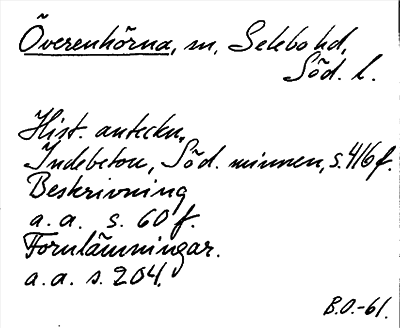 Överenhörna, m, Selebo hd,
Söd. l.
Hist. anteckn,
Indebetou, Söd. minnen, s. 416 f.
Beskrivning
a. a. s. 60 f.
Fornlämningar.
a. a. s. 204.
B.O.-61.